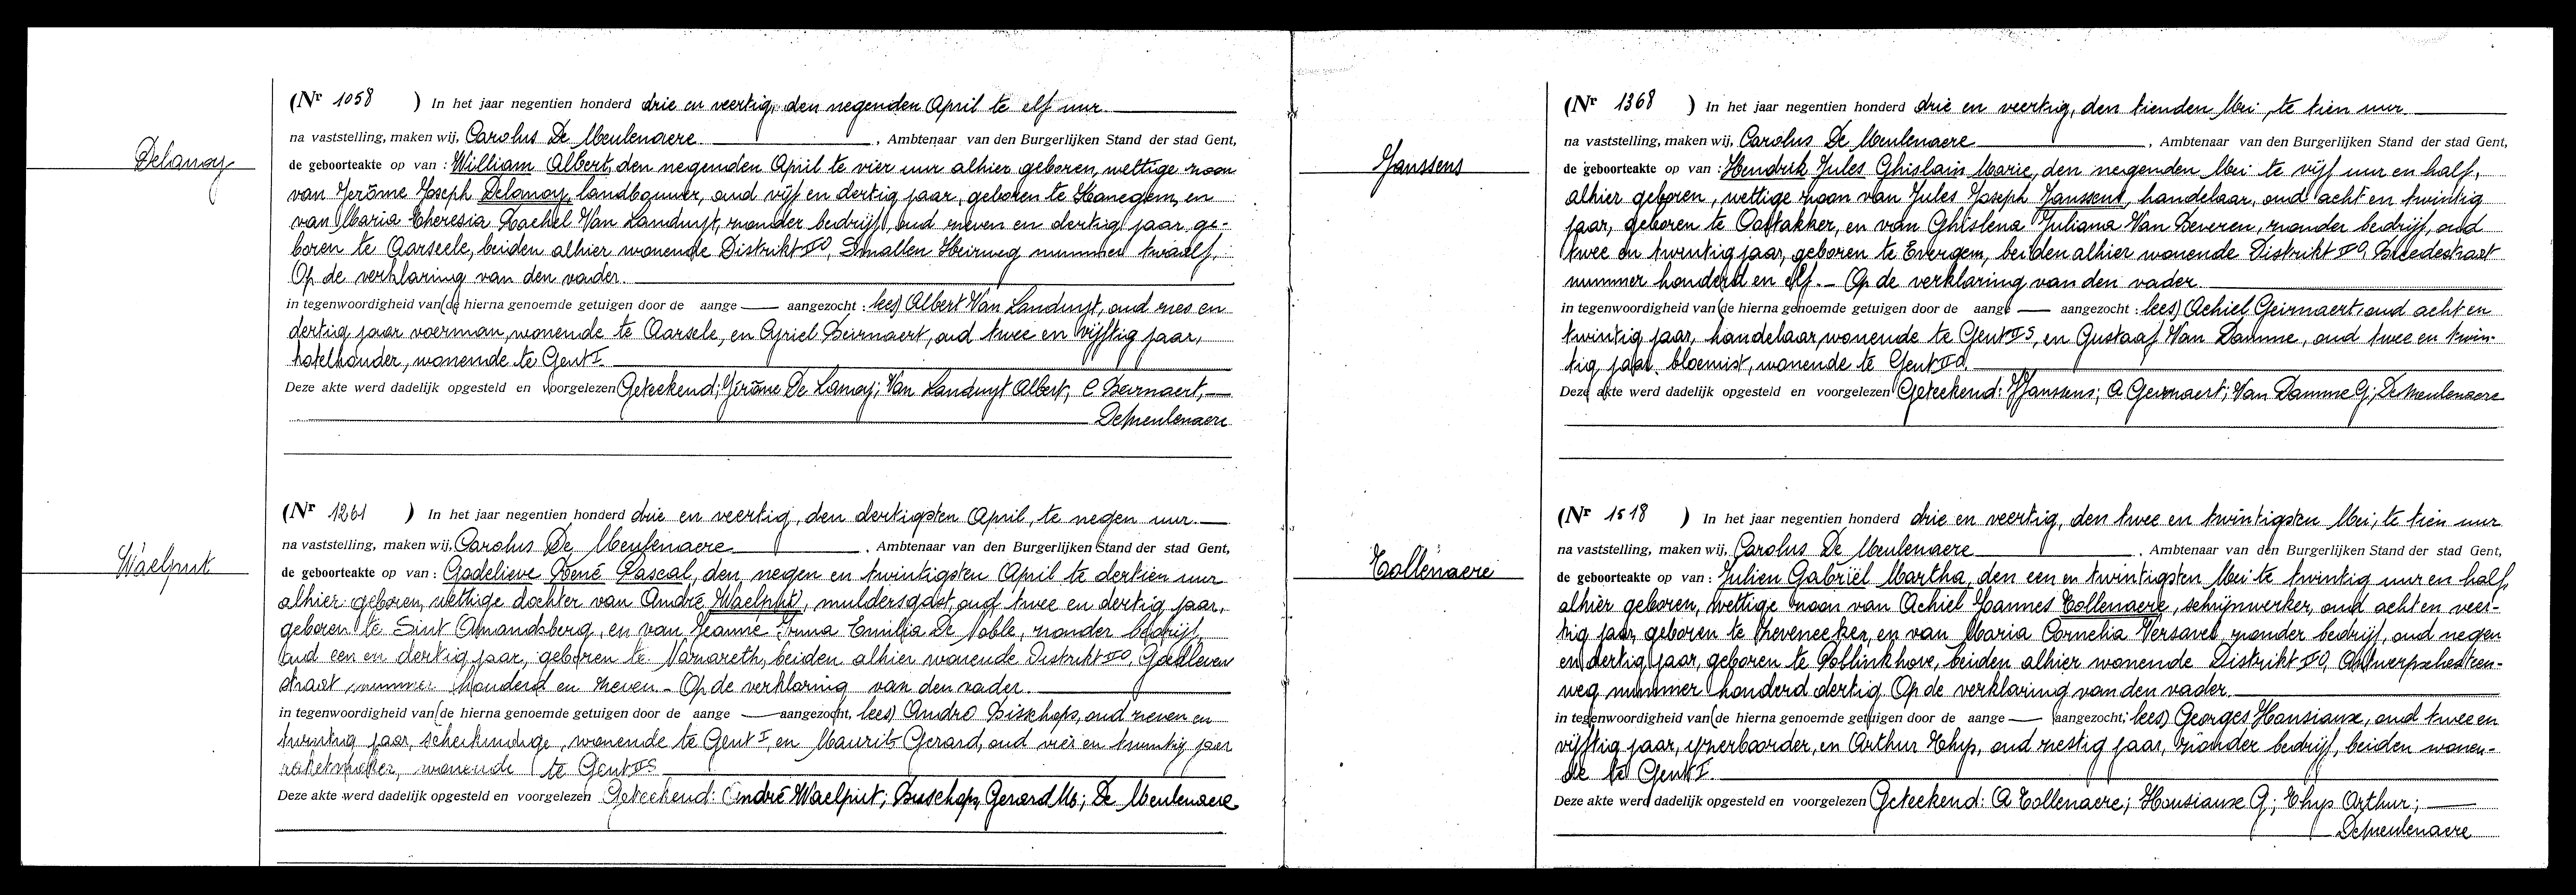 Delanoy
(Nr 1058 ) In het jaar negentien honderd drie en veertig, den negenden April te elf uur
na vaststelling, maken wij, Carolus De Meulenaere , Ambtenaar van den Burgerlijken Stand der stad Gent,
de geboorteakte op van : William Albert, den negenden April te vier uur alhier geboren, wettige zoon
van Jerôme Joseph Delanoy, landbouwer, oud vijf en dertig jaar, geboren te Kanegem, en
van Maria Theresia Rachel Van Landuyt, zonder bedrijf, oud zeven en dertig jaar ge-
boren te Aarseele, beiden alhier wonende Distrikt II O, Smallen Heirweg nummer twaalf,
Op de verklaring van den vader.
in tegenwoordigheid van (de hierna genoemde getuigen door de aange — aangezocht : lees) Albert Van Landuyt, oud zes en
dertig jaar voerman, wonende te Aarsele, en Cyriel Beirnaert, oud twee en vijftig jaar,
hotelhouder, wonende te Gent I.
Deze akte werd dadelijk opgesteld en voorgelezen Geteekend; Jérôme De Lanoy; Van Landuyt Albert, C Beirnaert, —
DeMeulenaere
Waelput
(Nr 1261 ) In het jaar negentien honderd drie en veertig, den dertigsten April, te negen uur
na vaststelling, maken wij, Carolus De Meulenaere , Ambtenaar van den Burgerlijken Stand der stad Gent,
de geboorteakte op van : Godelieve René Pascal, den negen en twintigsten April te dertien uur
alhier geboren, wettige dochter van André Waelput, muldersgast, oud twee en dertig jaar,
geboren te Sint Amandsberg, en van Jeanne Irma Emilia De Noble, zonder bedrijf,
oud een en dertig jaar, geboren te Nazareth, beiden alhier wonende Distrikt II O,
straat nummer honderd en zeven. - Op de verklaring van den vader.
in tegenwoordigheid van (de hierna genoemde getuigen door de aange — aangezocht, lees) André Bisschops, oud zeven en
twintig jaar, scheikundige, wonende te Gent I, en Maurits Gerard, oud vier en twintig jaar
zaketmaker, wonende te Gent II S
Deze akte werd dadelijk opgesteld en voorgelezen Geteekend: André Waelput; Bisschops, Gerard M; De Meulenaere
Janssens
(Nr 1368 ) In het jaar negentien honderd drie en veertig, den tienden Mei, te tien uur
na vaststelling, maken wij, Carolus De Meulenaere , Ambtenaar van den Burgerlijken Stand der stad Gent,
de geboorteakte op van : Hendrik Jules Ghislain Marie, den negenden Mei te vijf uur en half,
alhier geboren, wettige zoon van Jules Joseph Janssens, handelaar, oud acht en twintig
jaar, geboren te Oostakker, en van Ghislena Juliana Van Deveren, zonder bedrijf, oud
twee en twintig jaar, geboren te Evergem, beiden alhier wonende Distrikt II O, Breedestraat
nummer honderd en elf. - Op de verklaring van den vader.
in tegenwoordigheid van (de hierna genoemde getuigen door de aange — aangezocht : lees) Achiel Geirnaert, oud acht en
twintig jaar, handelaar wonende te Gent II S, en Gustaaf Van Damme, oud twee en twin-
tig jaar, bloemist, wonende te Gent II O.
Deze akte werd dadelijk opgesteld en voorgelezen Geteekend: JJanssens; A Geirnaert; Van Damme G; DeMeulenaere
Tollenaere
(Nr 1518 ) In het jaar negentien honderd drie en veertig, den twee en twintigsten Mei, te tien uur
na vaststelling, maken wij, Carolus De Meulenaere , Ambtenaar van den Burgerlijken Stand der stad Gent,
de geboorteakte op van : Julien Gabriël Martha, den een en twintigsten Mei te twintig uur en half,
alhier geboren, wettige zoon van Achiel Joannes Tollenaere, schrijnwerker, oud acht en veer-
tig jaar, geboren te Zeveneeken, en van Maria Cornelia Versavel, zonder bedrijf, oud negen
en dertig jaar, geboren te Pollinkhove, beiden alhier wonende Distrikt II O, Antwerpschesteen-
weg nummer honderd dertig Op de verklaring van den vader.
in tegenwoordigheid van (de hierna genoemde getuigen door de aange — aangezocht; lees) Georges Hansiaux, oud twee en
vijftig jaar, ijzerboorder, en Arthur Thys, oud zestig jaar, zonder bedrijf, beiden wonen-
de te Gent I.
Deze akte werd dadelijk opgesteld en voorgelezen Geteekend: A Tollenaere; Hansiaux G; Thys Arthur; —
DeMeulenaere